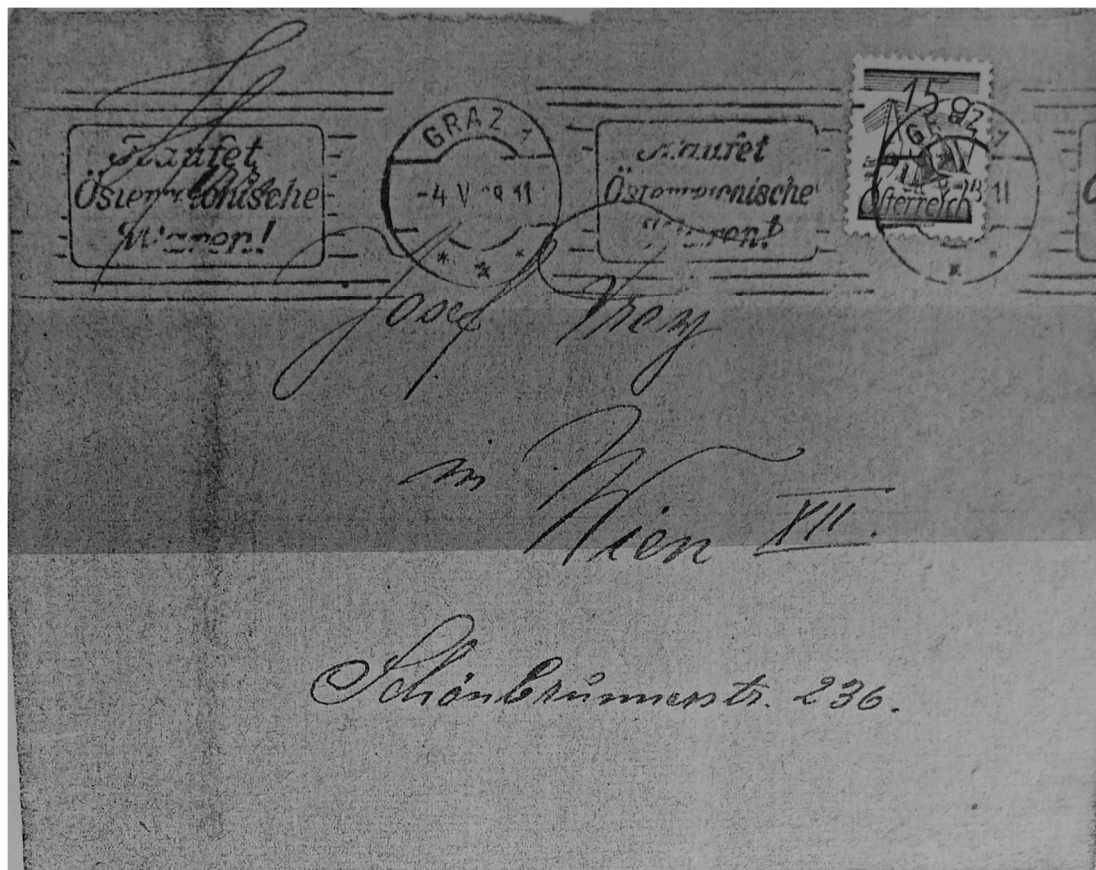 Kaufet
Österreichische
Waren!
GRAZ 1
-4.V. 11
Kaufet
Österreichische
Waren!
15 g
Österreich
GRAZ 1
11
Josef
in Wien XII.
Schönbrunnerstr. 236.